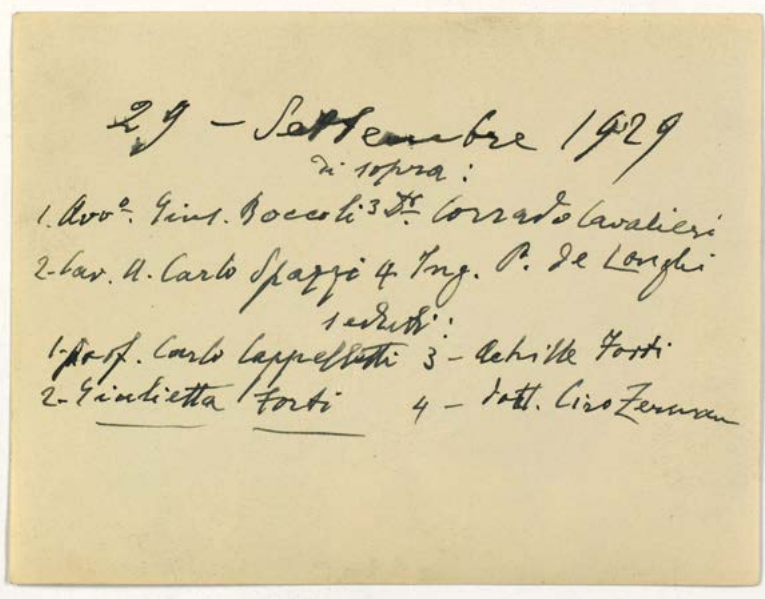 29 - Settembre 1929
di sopra:
1. Avvo. Gius. Boccoli 3 Dr. Corrado Cavalieri
2- Cav. A. Carlo Spazzi 4 Ing. P. de Longhi
seduti:
1- prof. Carlo Cappelletti 3 - Achille Forti
2- Giulietta Forti 4 - dott. Ciro Zerman